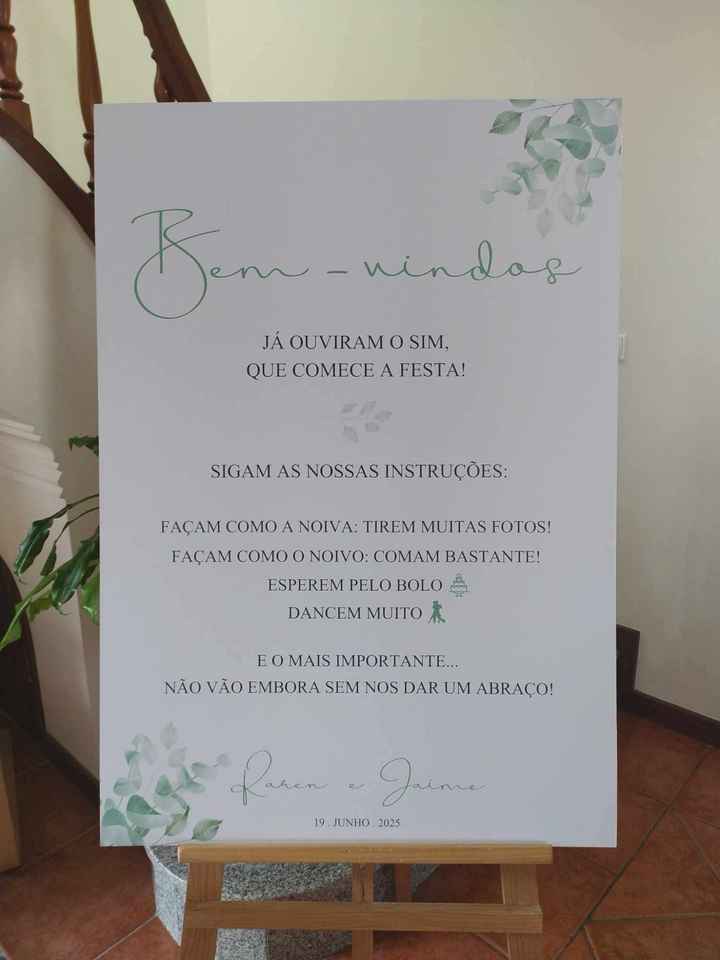 Bem-vindos
JÁ OUVIRAM O SIM,
QUE COMECE A FESTA!
SIGAM AS NOSSAS INSTRUÇÕES:
FAÇAM COMO A NOIVA: TIREM MUITAS FOTOS!
FAÇAM COMO O NOIVO: COMAM BASTANTE!
ESPEREM PELO BOLO
DANCEM MUITO
E O MAIS IMPORTANTE...
NÃO VÃO EMBORA SEM NOS DAR UM ABRAÇO!
Karen e Jaime
19 . JUNHO . 2025